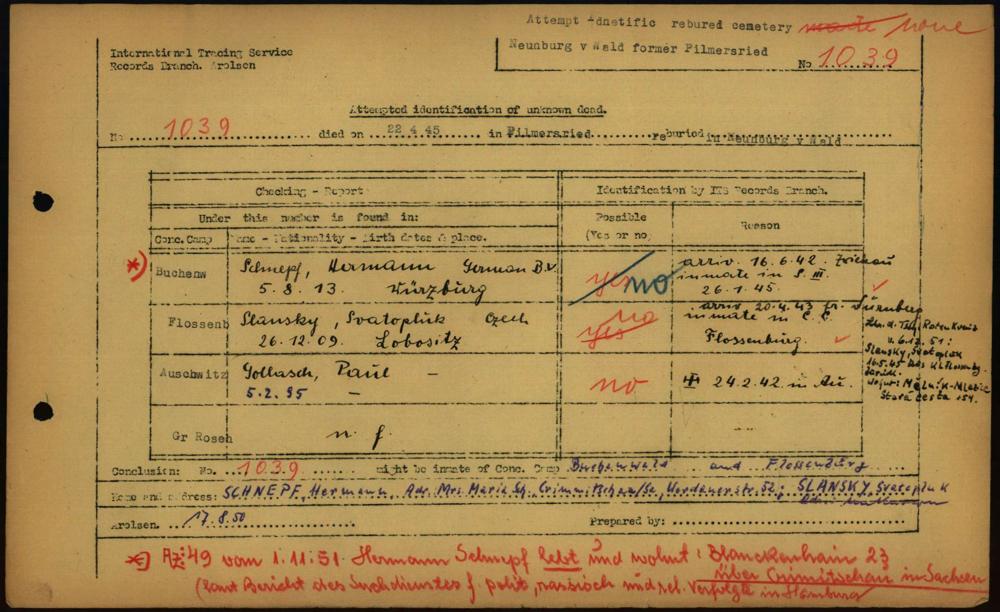 Attempt Idnetific rebured cemetery none
Neunburg v Wald former Pilmersried
No 1039
International Tracing Service
Records Branch. Arolsen
Attempted identification of unknown dead.
No 1039 died on 22 4 45 in Pilmersried. Reburied in Neunburg v Wald
Checking - Report
Identification by ITS Records Branch.
Under this number is found in:
Possible (Yes or no)
Reason
Conc. Camp Name - Nationality - Birth dates & place.
*) Buchenw Schnepf, Hermann German B.V.
5. 8. 13. Würzburg
yes no
arriv. 16.6.42. Zwickau
inmate in S. III
26.1.45.
Flossenb Slansky, Svatopluk Czech
26.12.09. Lobositz
No
yes
arriv 20.4.43 fr. Nürnberg
inmate in C. C.
Flossenburg.
v. 6.12.51:
Slansky, Svatopluk
16.5.45 aus KL Flossenbg.
Stará cesta 154.
Auschwitz Gollasch, Paul -
5.2.95 -
no
24.2.42 in Au.
Gr Roseh n. f.
Conclusion: No. 1039 might be inmate of Conc. Camp Buchenwald and Flossenbürg
Name and address: SCHNEPF, Hermann, Adr. Mrs. Maria Sch. Crimmitschau/Sa, Werdauerstr. 52; SLANSKY, Svatopluk
Arolsen. 17.8.50 Prepared by:
*) Az: 49 vom 1.11.51. Hermann Schnepf lebt und wohnt: Blanckenhain 23
über Crimitschau in Sachsen
(laut Bericht des Suchdienstes f. polit, rassisch und rel. Verfolgte in Hamburg